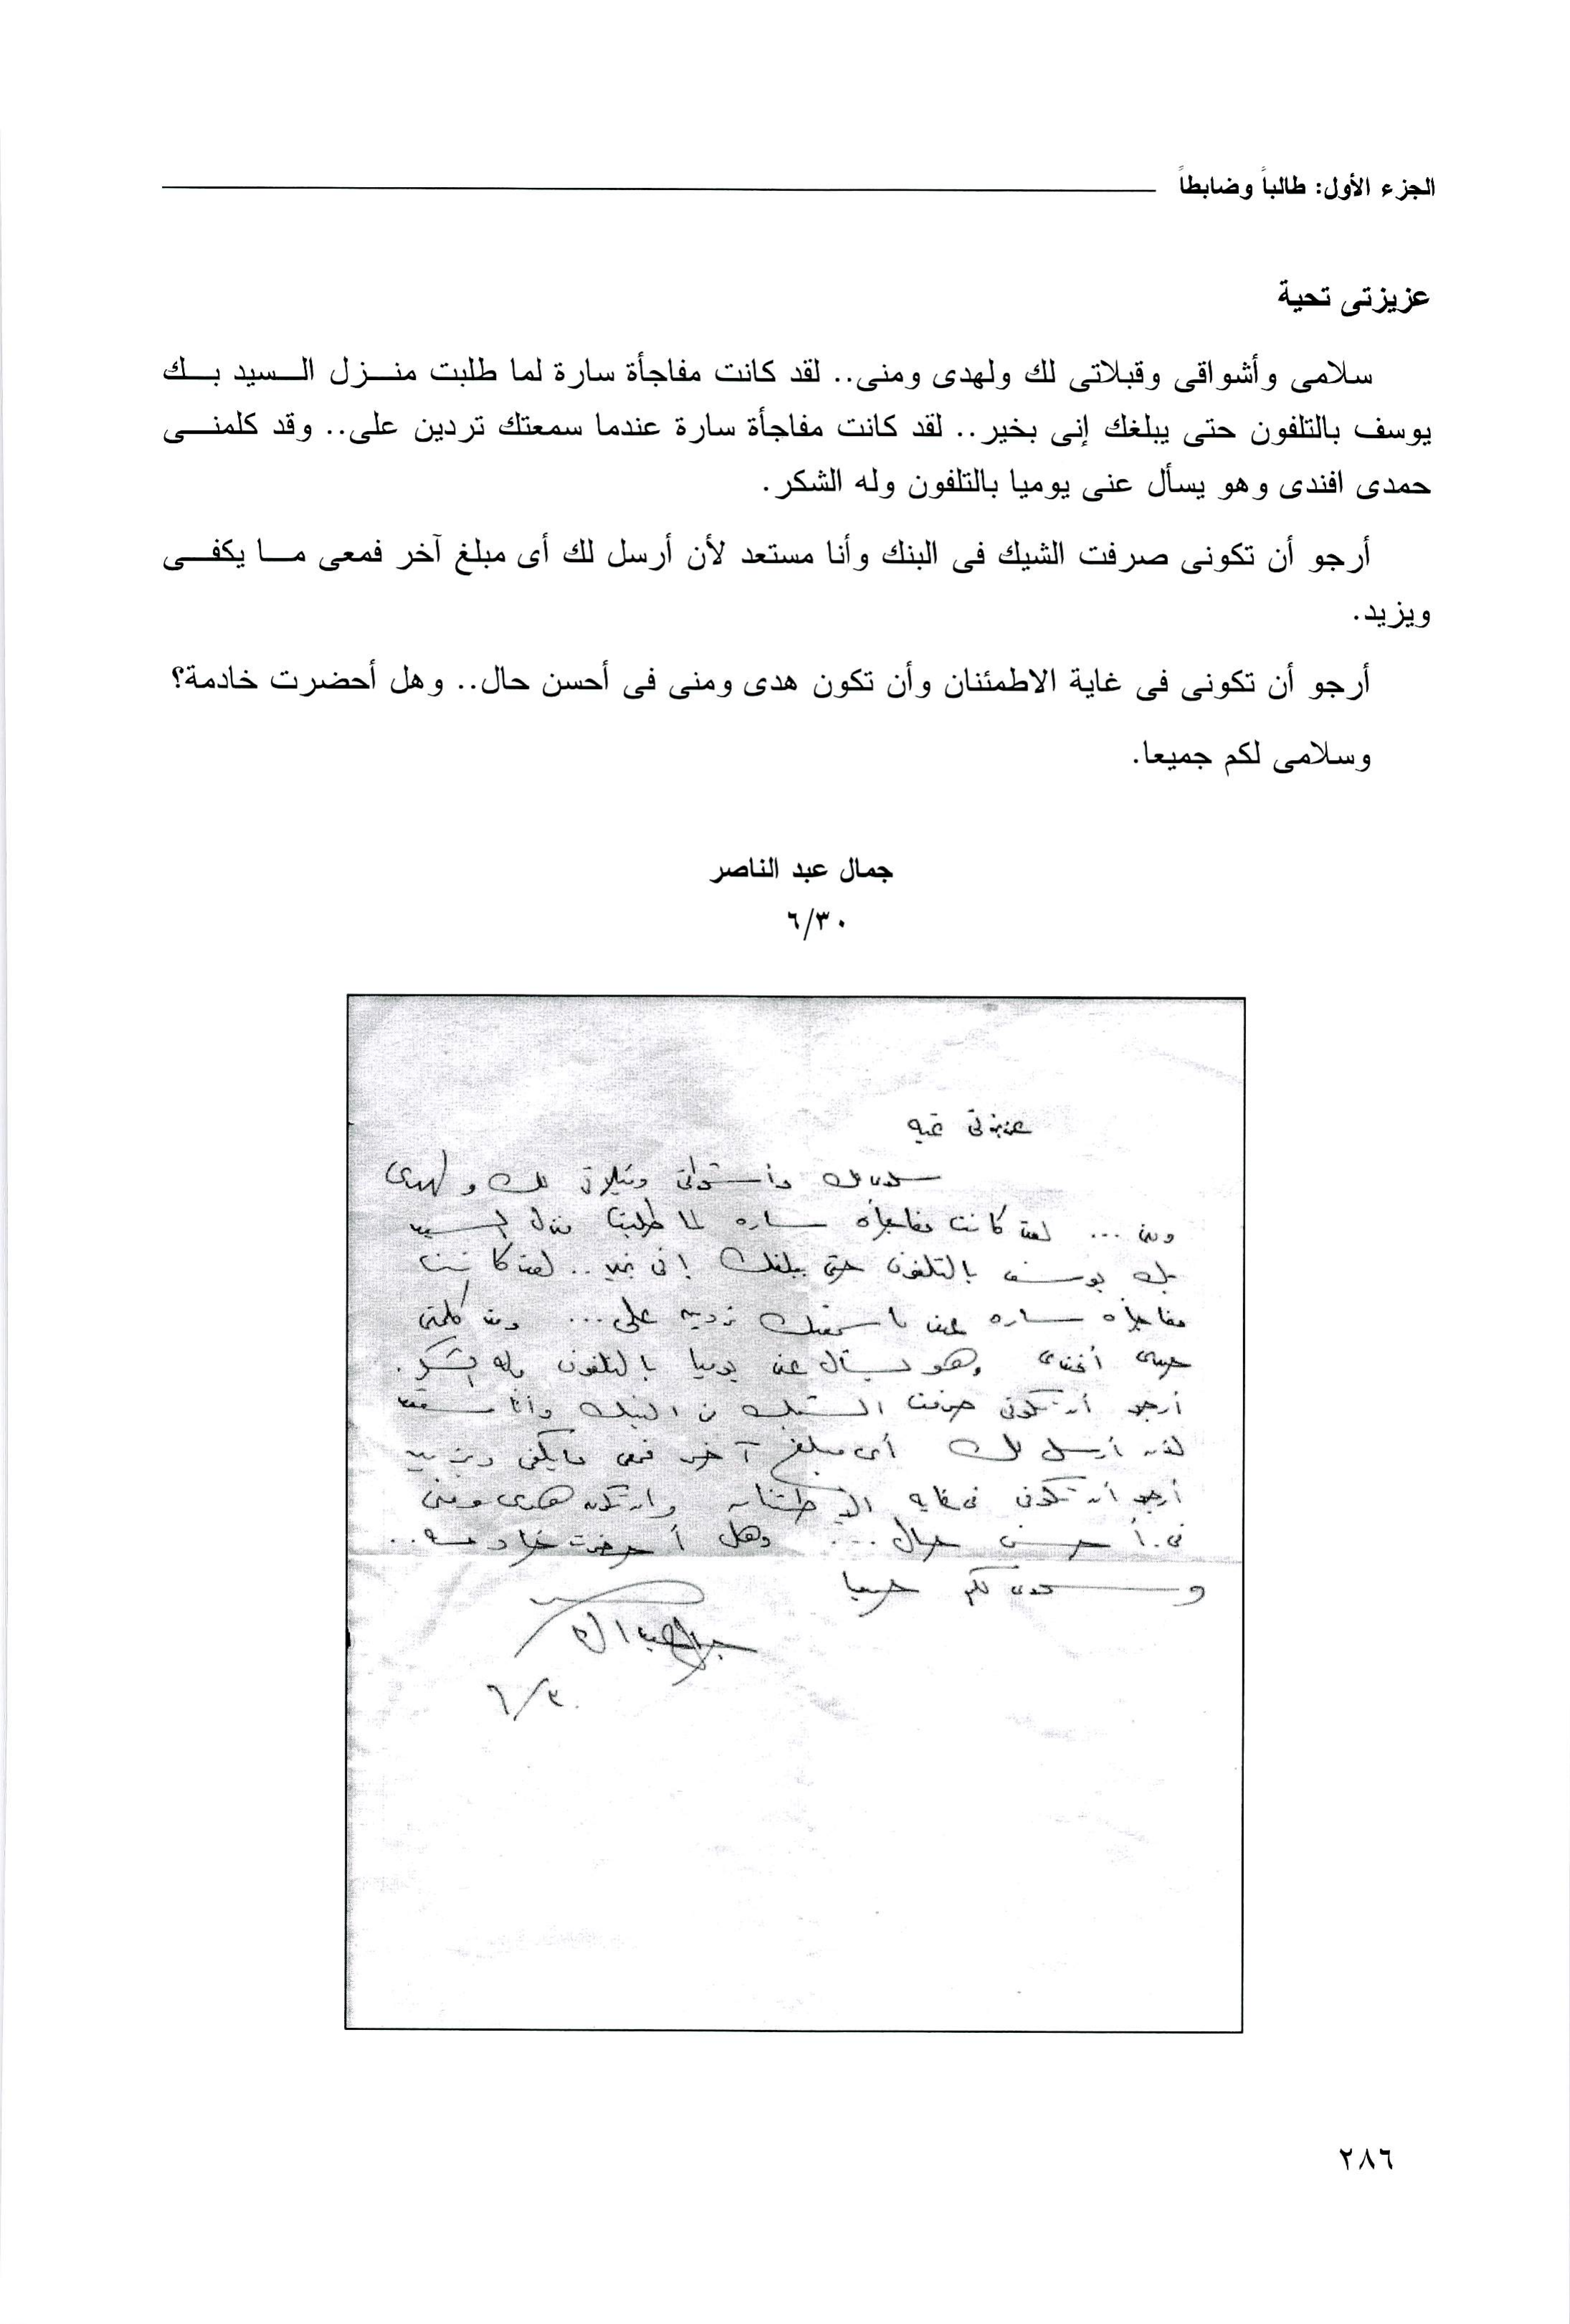 الجزء الأول: طالباً وضابطاً
عزيزتى تحية
سلامى وأشواقى وقبلاتى لك ولهدى ومنى.. لقد كانت مفاجأة سارة لما طلبت منزل السيد بك
يوسف بالتلفون حتى يبلغك إنى بخير.. لقد كانت مفاجأة سارة عندما سمعتك تردين على.. وقد كلمنى
حمدى افندى وهو يسأل عنى يوميا بالتلفون وله الشكر.
أرجو أن تكونى صرفت الشيك فى البنك وأنا مستعد لأن أرسل لك أى مبلغ آخر فمعى ما يكفى
ويزيد.
أرجو أن تكونى فى غاية الاطمئنان وأن تكون هدى ومنى فى أحسن حال.. وهل أحضرت خادمة؟
وسلامى لكم جميعا.
جمال عبد الناصر
٦/٣٠
عزيزتى تحيه
وأشواقى وقبلاتى لك ولهدى
ومنى ... لقد كانت مفاجأه ساره لما طلبت منزل السيد
بك يوسف بالتلفون حتى يبلغك إنى بخير .. لقد كانت
مفاجأه ساره عندما سمعتك تردين على ... وقد كلمنى
حمدى أفندى وهو يسأل عنى يوميا بالتلفون وله الشكر .
أرجو أن تكونى صرفت الشيك فى البنك وأنا مستعد
لأن أرسل لك أى مبلغ آخر فمعى ما يكفى ويزيد
أرجو أن تكونى فى غايه الاطمئنان وأن تكون هدى ومنى
فى أحسن حال ... وهل أحضرت خادمه ..
وسلامى لكم جميعا
جمال عبد الناصر
٦/٣٠
٢٨٦